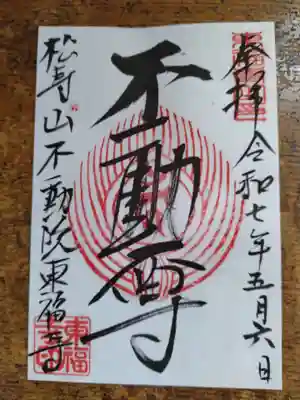 奉拝 令和七年五月六日
不動尊
松寿山不動院東福寺
東福寺印